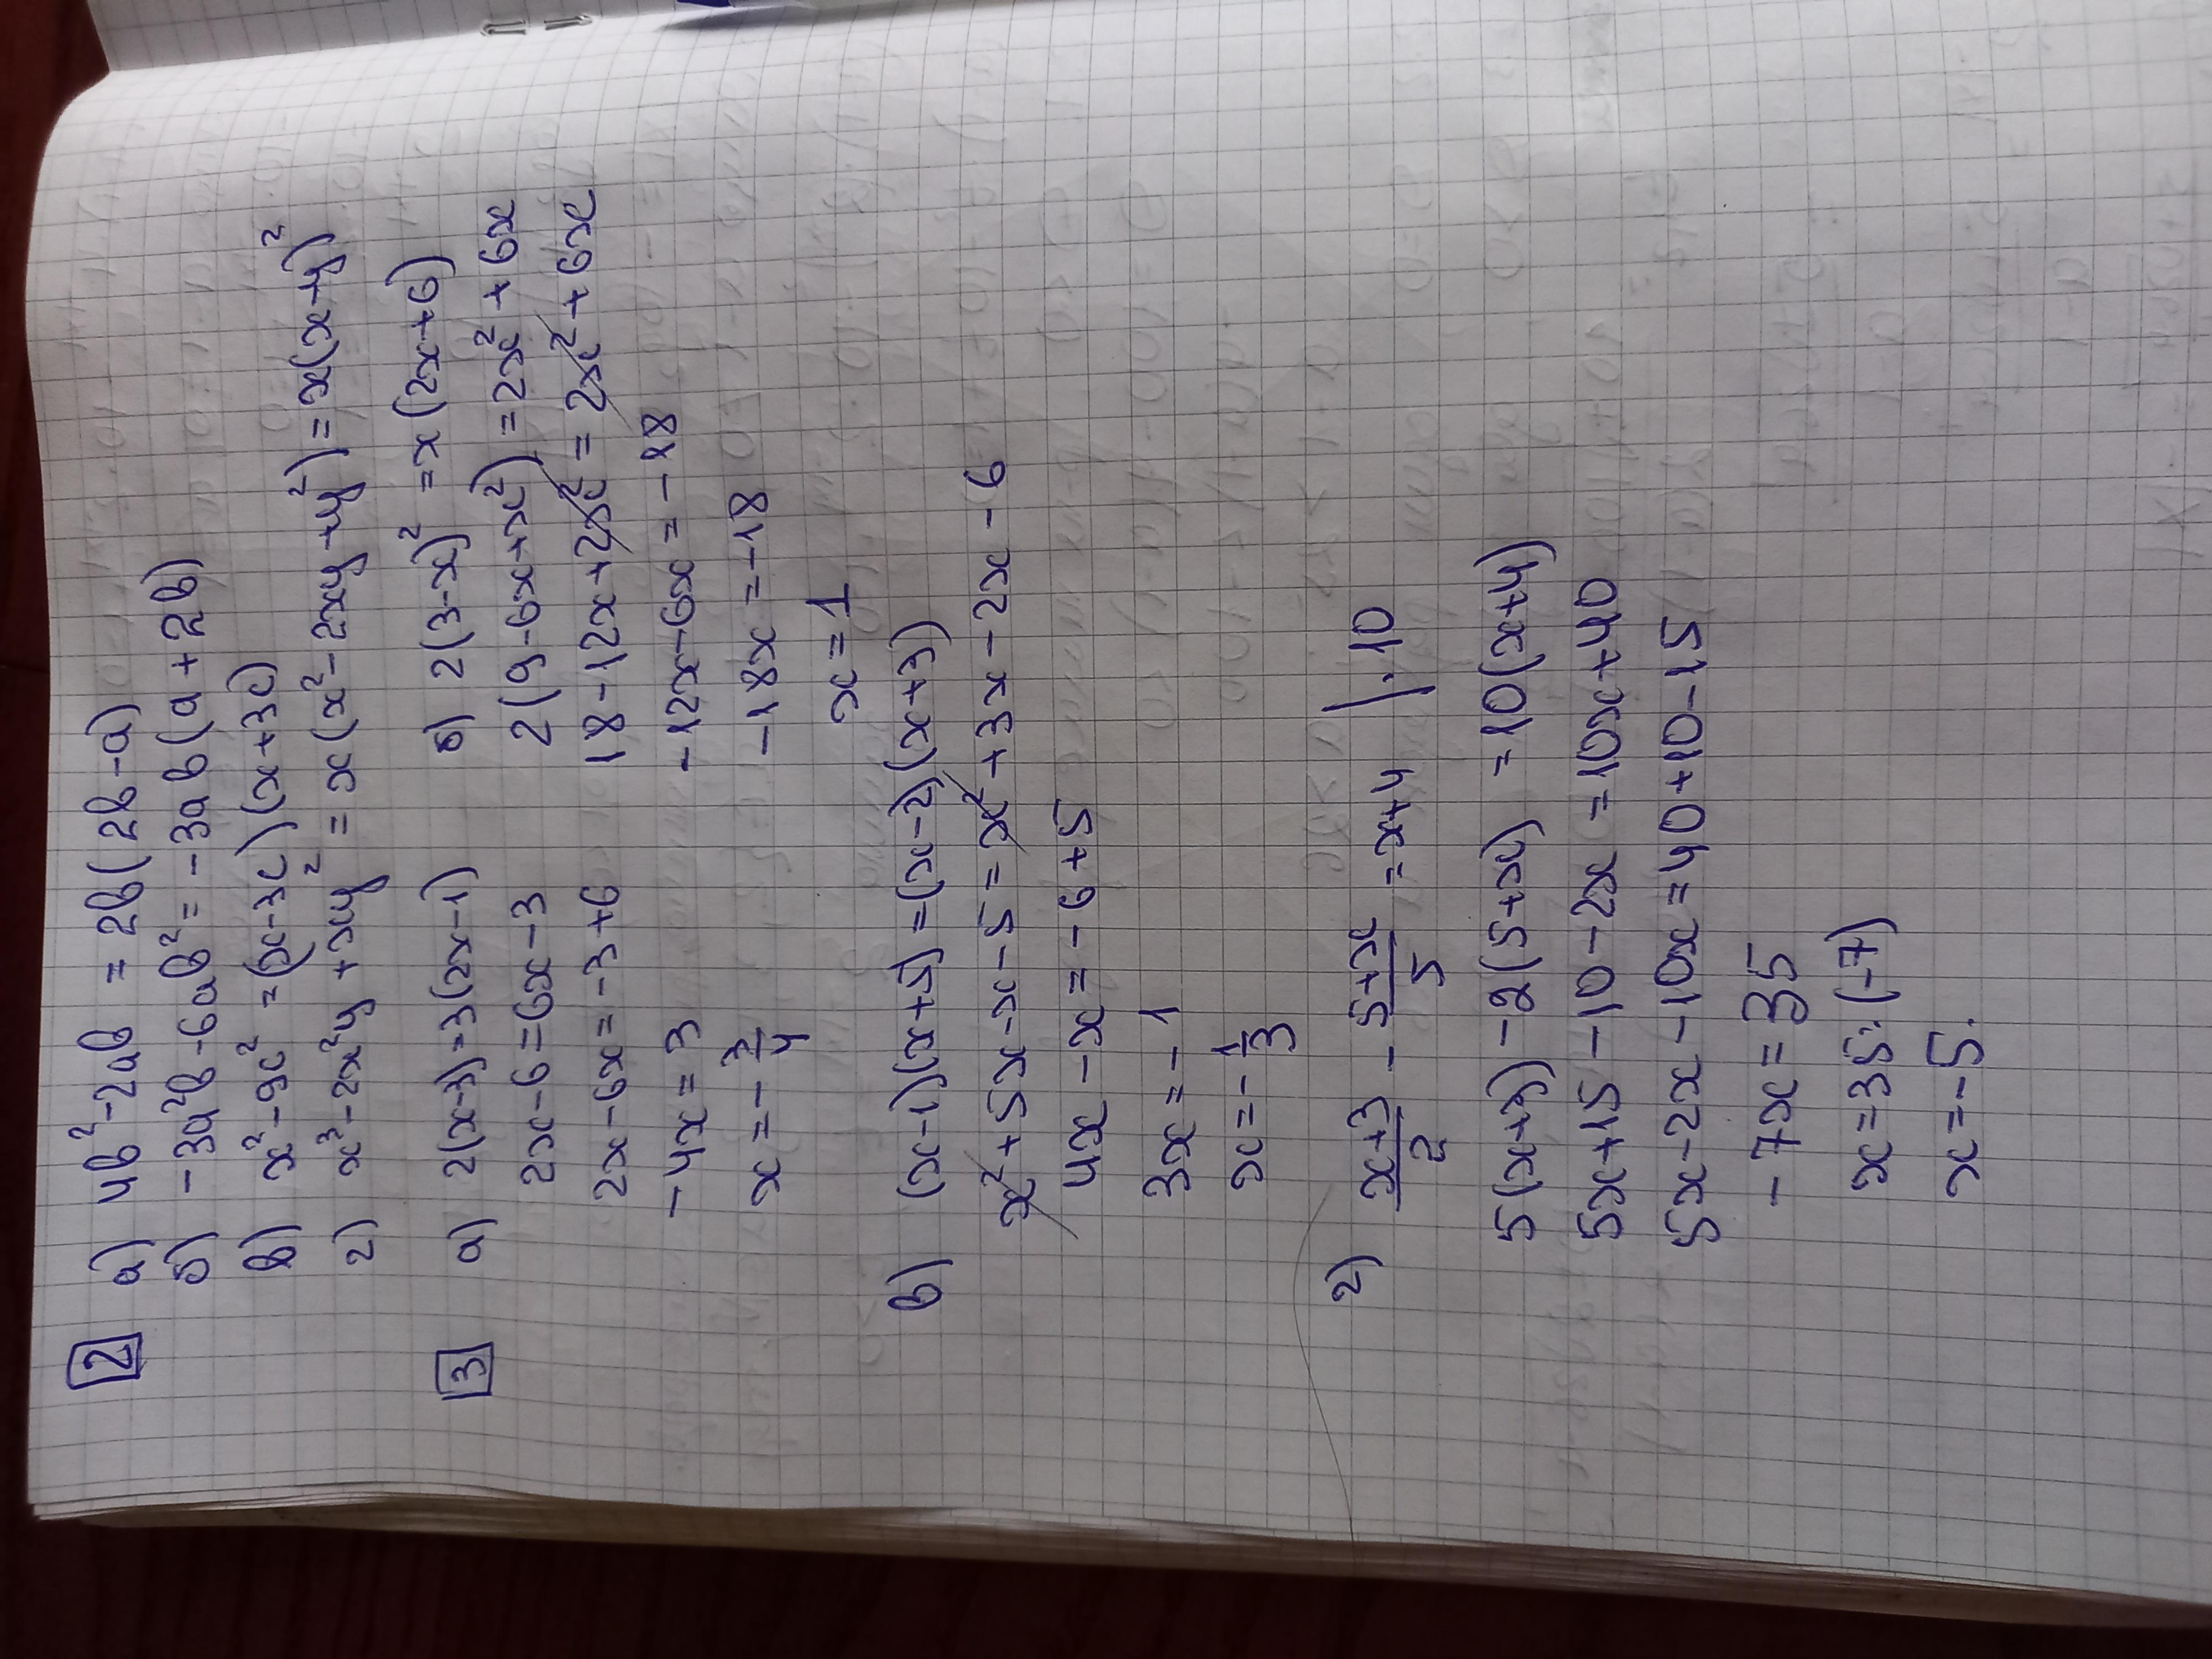 2
а) 4b²-2ab = 2b(2b-a)
б) -3a²b-6ab² = -3ab(a+2b)
в) x²-9c² = (x-3c)(x+3c)
г) x³-2x²y+xy² = x(x²-2xy+y²) = x(x-y)²
3
а) 2(x-3)=3(2x-1)
2x-6=6x-3
2x-6x=-3+6
-4x=3
x=-3/4
б) 2(3-x)² = x(2x+6)
2(9-6x+x²)=2x²+6x
18-12x+2x²=2x²+6x
-12x-6x=-18
-18x=-18
x=1
в) (x-1)(x+5)=(x-2)(x+3)
x²+5x-x-5=x²+3x-2x-6
4x-x=-6+5
3x=-1
x=-1/3
г) x+3/2 - 5+x/5 = x+4 |·10
5(x+3)-2(5+x) =10(x+4)
5x+15-10-2x=10x+40
5x-2x-10x=40+10-15
-7x=35
x=35:(-7)
x=-5.